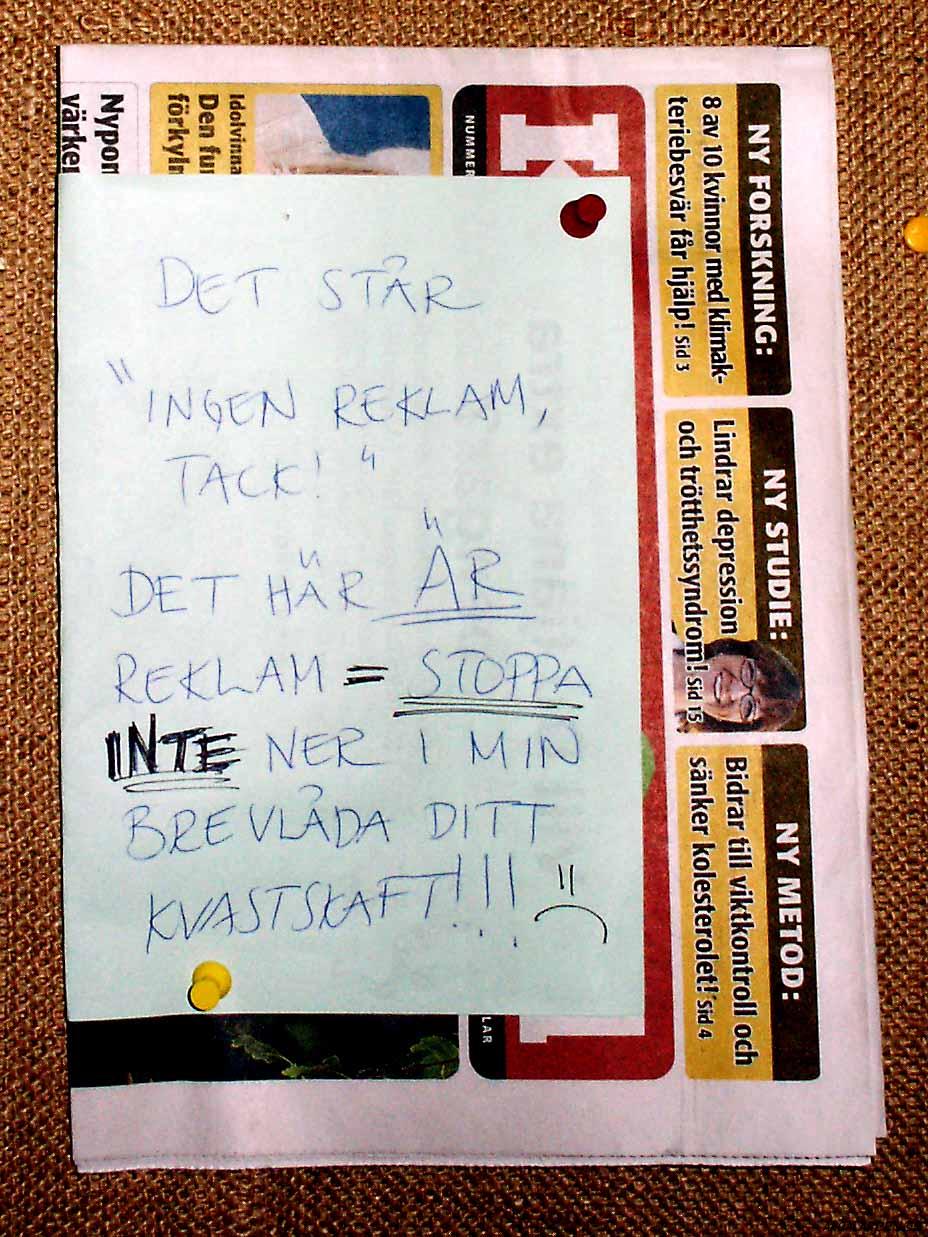 DET STÅR
"INGEN REKLAM,
TACK!"
DET HÄR ÄR
REKLAM = STOPPA
INTE NER I MIN
BREVLÅDA DITT
KVASTSKAFT!!! :(
NY FORSKNING:
8 av 10 kvinnor med klimak-
teriebesvär får hjälp! Sid 3
NY STUDIE:
Lindrar depression
och trötthetssyndrom! Sid 15
NY METOD:
Bidrar till viktkontroll och
sänker kolesterolet! Sid 4
NUMMER
LAR
Idolvinna
Den fu
förkyln
Nypon
värker